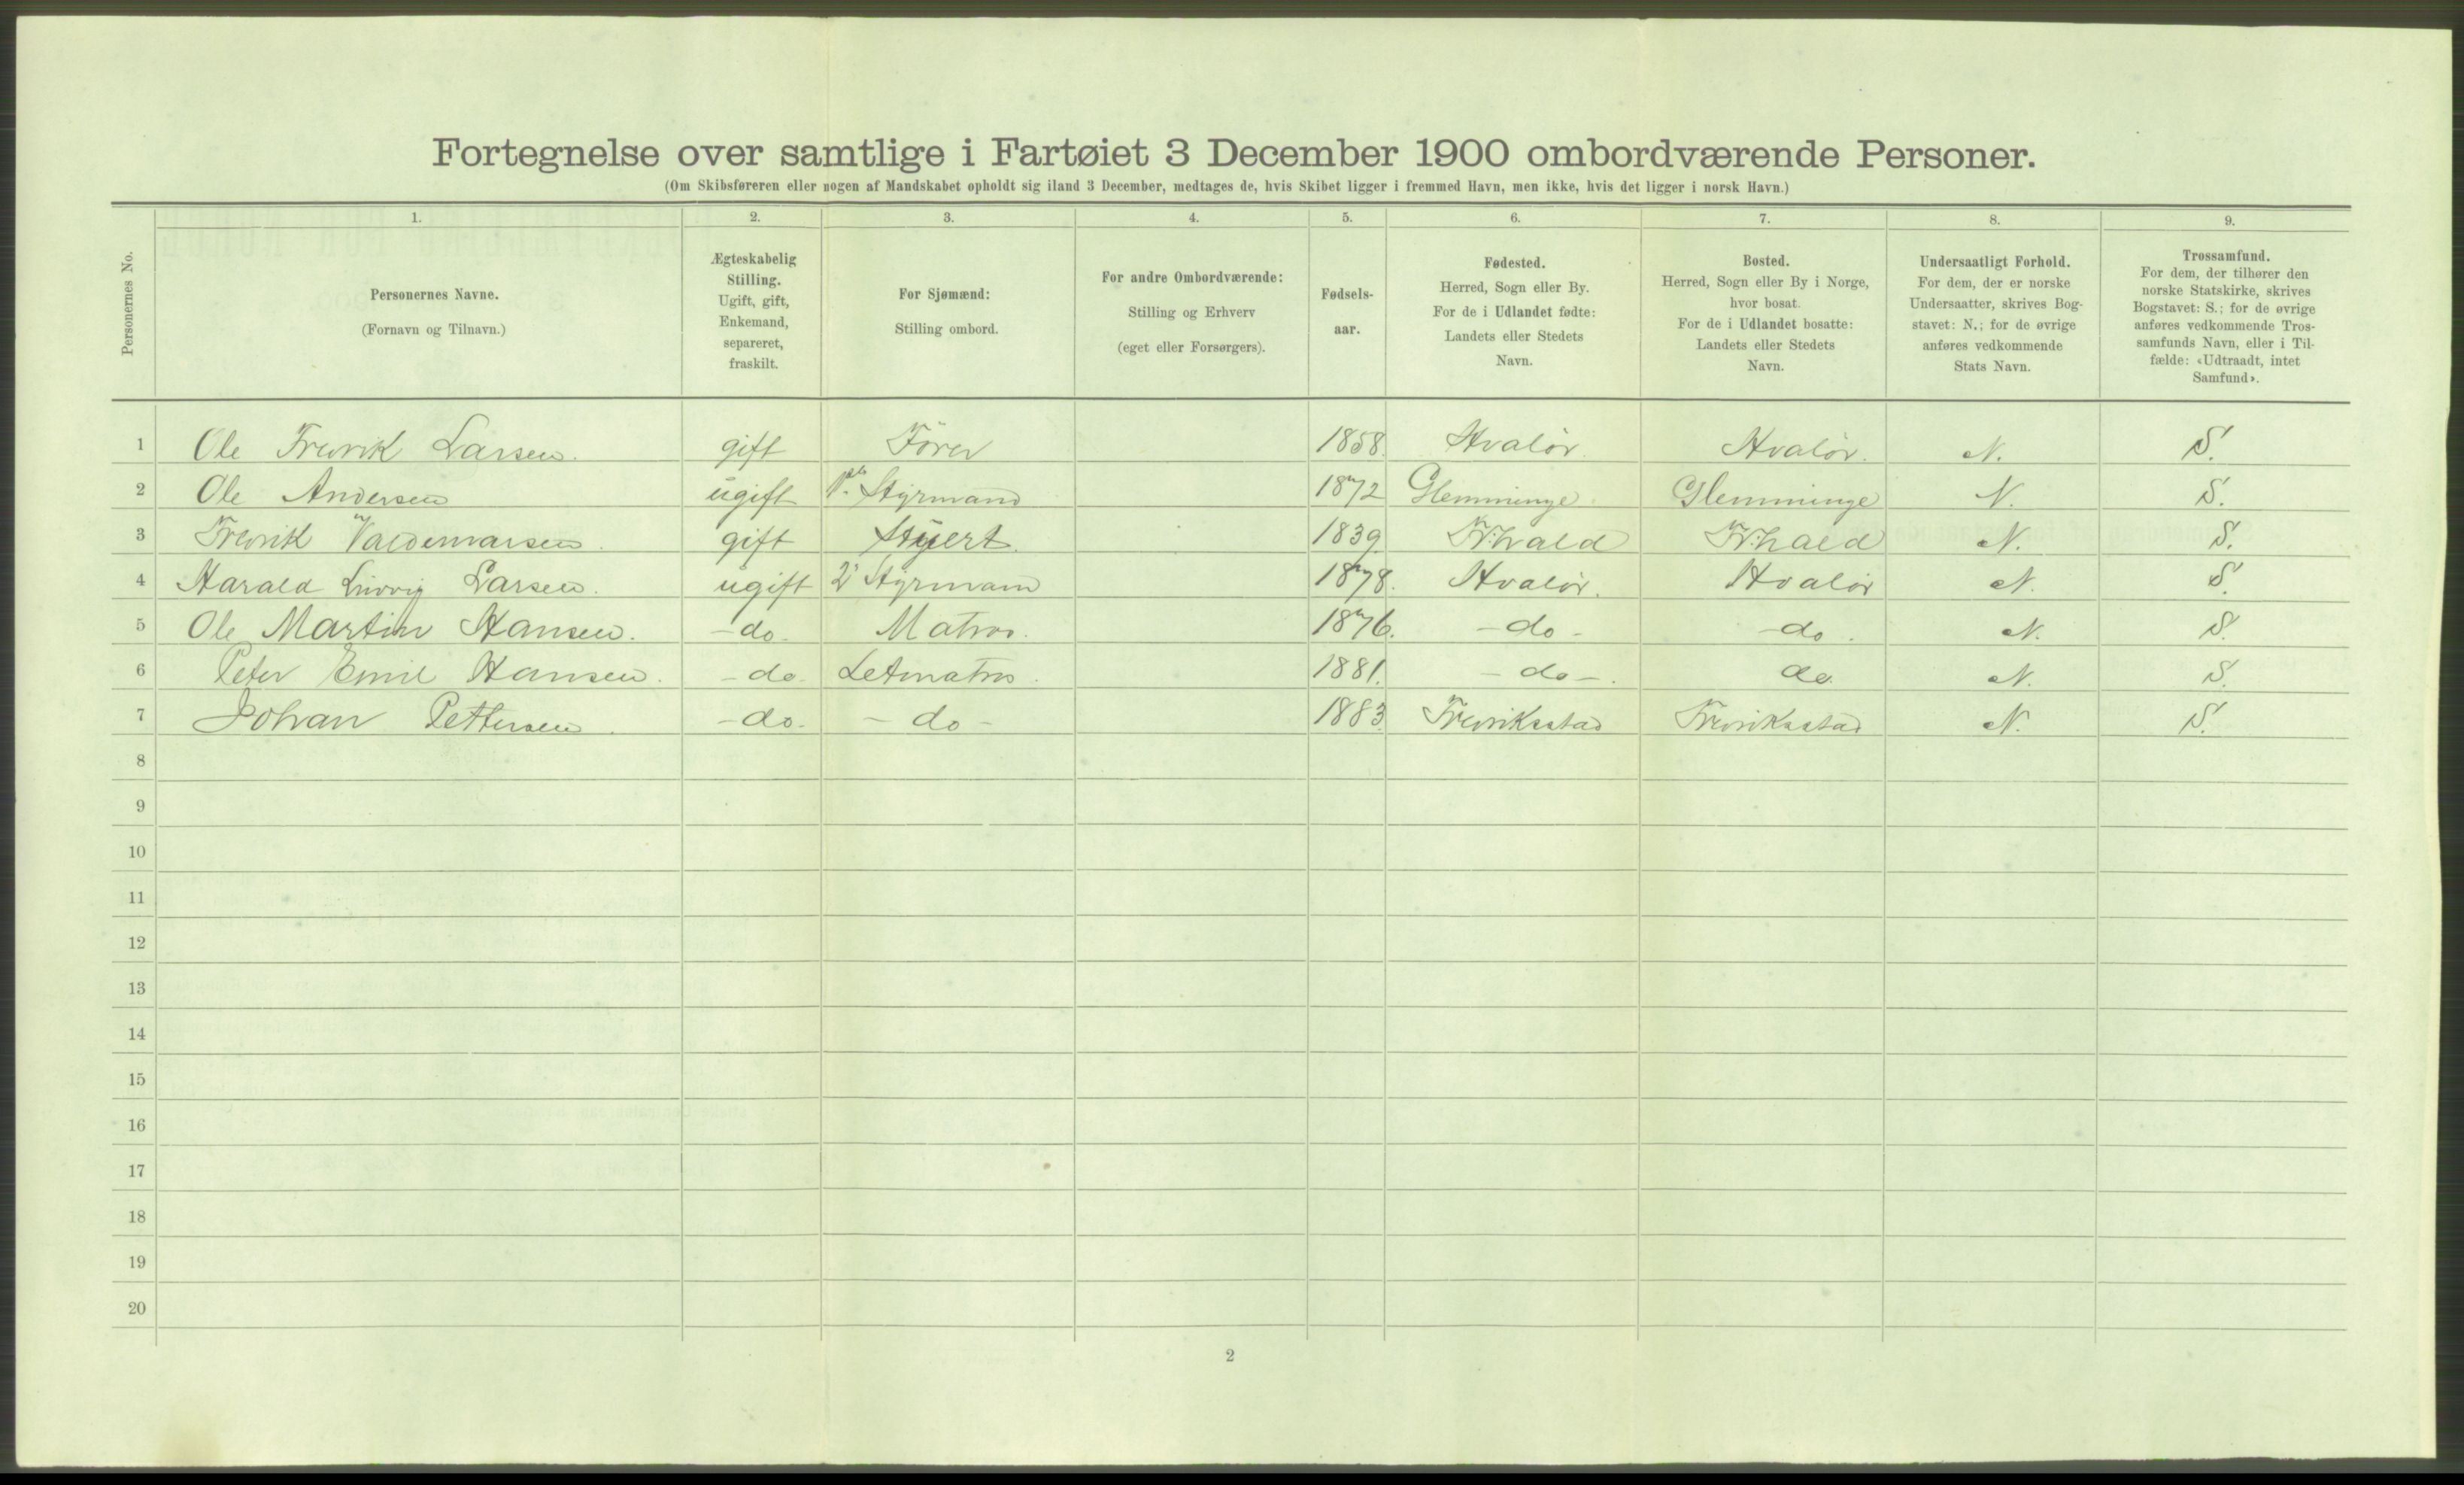 Fortegnelse over samtlige i Fartøiet 3 December 1900 ombordværende Personer.
(Om Skibsføreren eller nogen af Mandskabet opholdt sig iland 3 December, medtages de, hvis Skibet ligger i fremmed Havn, men ikke, hvis det ligger i norsk Havn.)
Personernes No.
1. 2. 3. 4. 5. 6. 7. 8. 9.
Personernes Navne.
(Fornavn og Tilnavn.)
Ægteskabelig
Stilling.
Ugift, gift,
Enkemand,
separeret,
fraskilt.
For Sjømænd:
Stilling ombord.
For andre Ombordværende:
Stilling og Erhverv
(eget eller Forsørgers).
Fødsels-
aar.
Fødested.
Herred, Sogn eller By.
For de i Udlandet fødte:
Landets eller Stedets
Navn.
Bosted.
Herred, Sogn eller By i Norge,
hvor bosat.
For de i Udlandet bosatte:
Landets eller Stedets
Navn.
Undersaatligt Forhold.
For dem, der er norske
Undersaatter, skrives Bog-
stavet: N.; for de øvrige
anføres vedkommende
Stats Navn.
Trossamfund.
For dem, der tilhører den
norske Statskirke, skrives
Bogstavet: S.; for de øvrige
anføres vedkommende Tros-
samfunds Navn, eller i Til-
fælde: «Udtraadt, intet
Samfund».
1 Ole Fredrik Larsen. gift Förer 1858. Hvalör. Hvalör. N. S.
2 Ole Andersen ugift Styrmand 1872 Glemminge Glemminge N. S.
3 Fredrik Valdemarsen. gift Stuert. 1839. Fr.hald Fr.hald N. S.
4 Harald Ludvig Larsen. ugift 2' Styrmand 1878. Hvalör. Hvalör N. S.
5 Ole Martin Hansen. -do- Matros. 1876. -do- -do. N. S.
6 Peter Emil Hansen. -do- Letmatros. 1881. -do-. do. N. S.
7 Johan Pettersen. -do- -do- 1883. Fredriksstad Fredriksstad N. S.
8
9
10
11
12
13
14
15
16
17
18
19
20
2